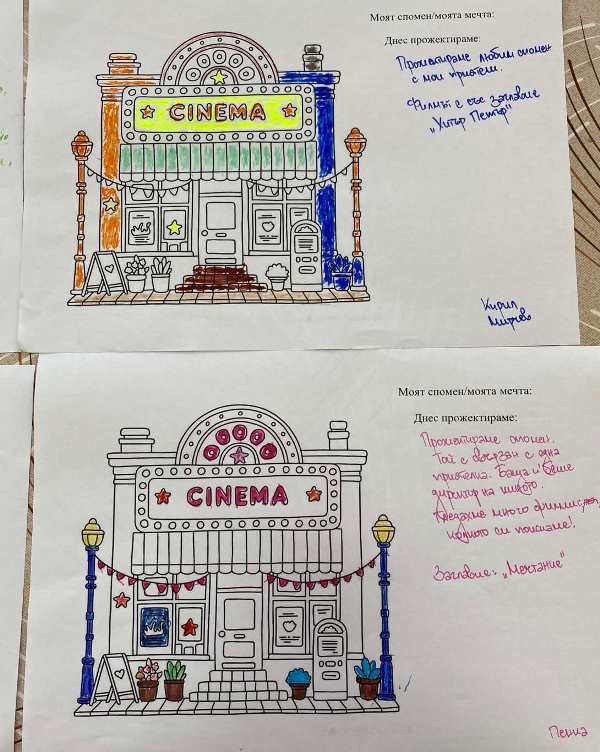 Моят спомен/моята мечта:
Днес прожектираме:
Прожектираме любим спомен
с мои приятели.
Филмът е със заглавие
„Хитър Петър"
CINEMA
Кирил
Моят спомен/моята мечта:
Днес прожектираме:
Прожектираме спомен.
Той е свързан с една
приятелка. Баща и беше
директор на киното.
Гледахме много филми
колкото си поискаме!
Заглавие: „Мечтание"
CINEMA
Пенка